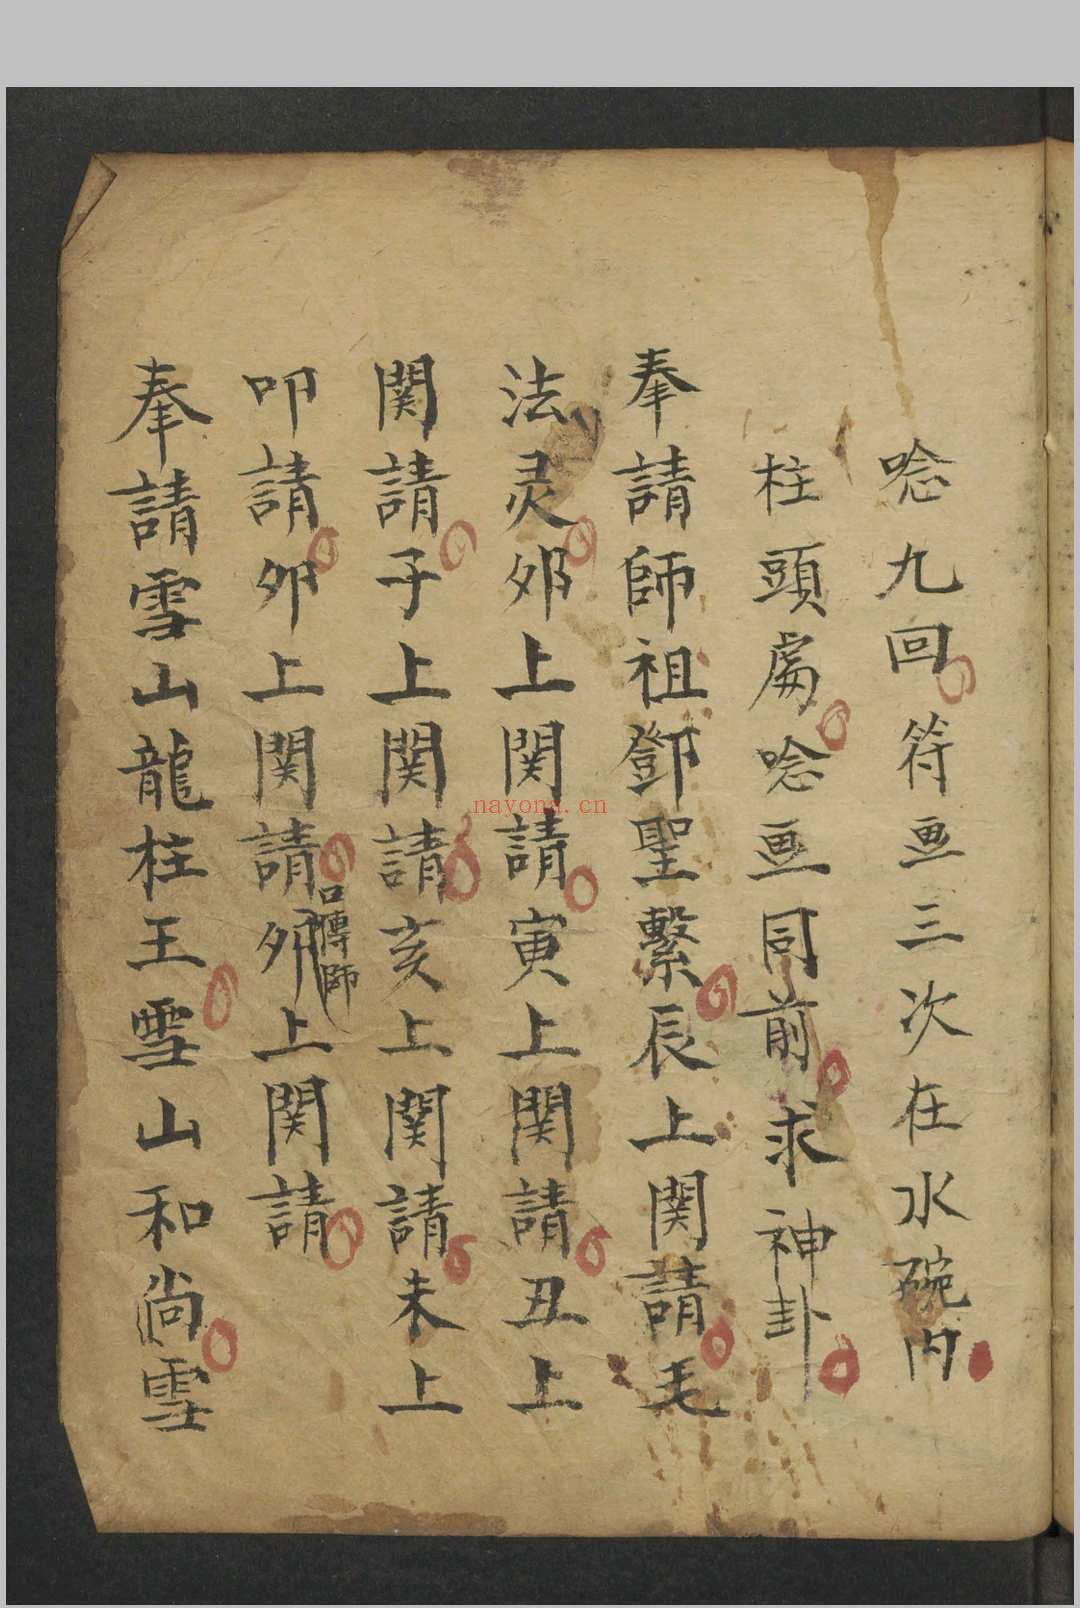 唸九回符画三次在水碗内
柱頭處唸画同前求神卦
奉請師祖鄧聖繫辰上関請毛
法灵邜上関請寅上関請丑上
関請子上関請亥上関請未上
口傳師
叩請卯上関請卯上関請
奉請雪山龍柱王雪山和尚雪
nayona.cn